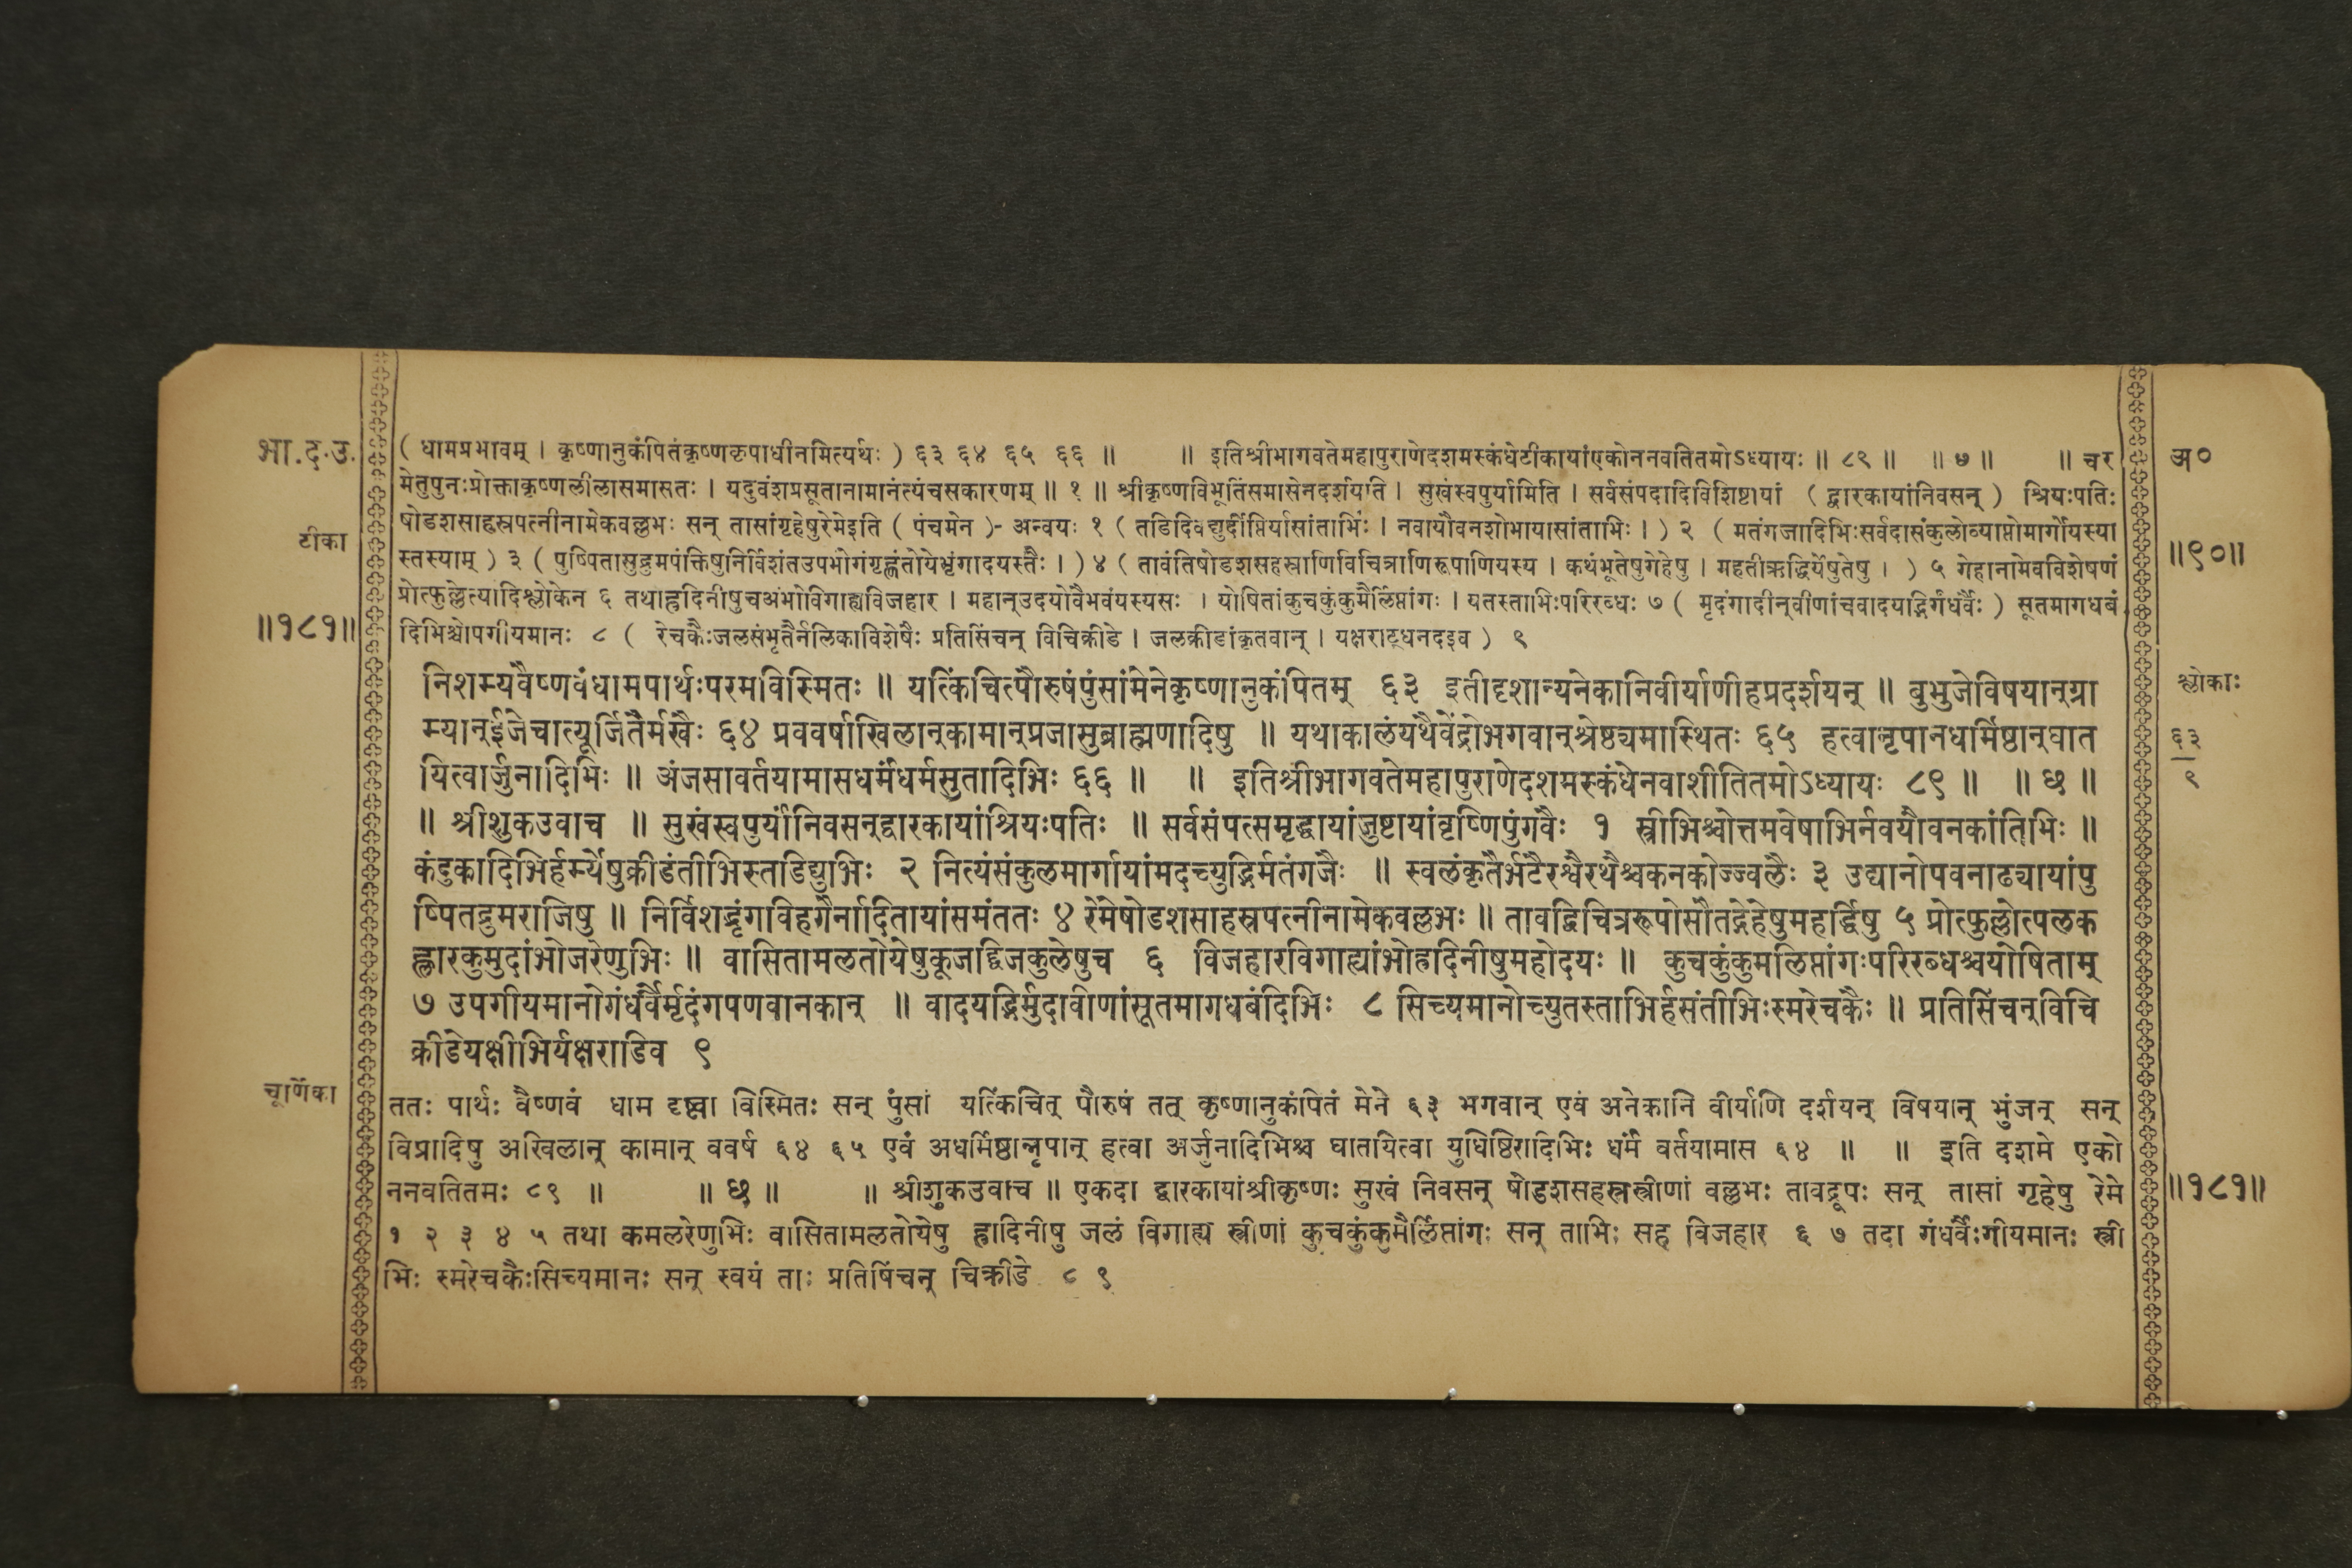 भा.द.उ.
टीका
॥१८१॥
चूर्णिका
( धामप्रभावम् । कृष्णानुकंपितंकृष्णकृपाधीनमित्यर्थः ) ६३ ६४ ६५ ६६ ॥ ॥ इतिश्रीभागवतेमहापुराणेदशमस्कंधेटीकायांएकोननवतितमोऽध्यायः ॥ ८९ ॥ ॥ ७ ॥ ॥ चर
मेतुपुनःप्रोक्ताकृष्णलीलासमासतः । यदुवंशप्रसूतानामानंत्यंचसकारणम् ॥ १ ॥ श्रीकृष्णविभूतिंसमासेनदर्शयति । सुखंस्वपुर्यामिति । सर्वसंपदादिविशिष्टायां ( द्वारकायांनिवसन् ) श्रियःपतिः
षोडशसाहस्रपत्नीनामेकवल्लभः सन् तासांगृहेषुरेमेइति ( पंचमेन )- अन्वयः १ ( तडिदिवद्युर्दीप्तिर्यासांताभिः । नवायौवनशोभायासांताभिः । ) २ ( मतंगजादिभिःसर्वदासंकुलोव्याप्तोमार्गोयस्या
स्तस्याम् ) ३ ( पुष्पितासुद्रुमपंक्तिषुनिर्विशंतउपभोगंगृह्णंतोयेभृंगादयस्तैः । ) ४ ( तावंतिषोडशसहस्राणिविचित्राणिरूपाणियस्य । कथंभूतेषुगेहेषु । महतीऋद्धिर्येषुतेषु । ) ५ गेहानामेवविशेषणं
प्रोत्फुल्लेत्यादिश्लोकेन ६ तथाह्रदिनीषुचअंभोविगाह्यविजहार । महान्उदयोवैभवंयस्यसः । योषितांकुचकुंकुमैर्लिप्तांगः । यतस्ताभिःपरिरब्धः ७ ( मृदंगादीन्वीणांचवादयद्भिर्गंधर्वैः ) सूतमागधबं
दिभिश्चोपगीयमानः ८ ( रेचकैःजलसंभृतैर्नलिकाविशेषैः प्रतिसिंचन् विचिक्रीडे । जलक्रीडांकृतवान् । यक्षराट्धनदइव ) ९
निशम्यवैष्णवंधामपार्थःपरमविस्मितः ॥ यत्किंचित्पौरुषंपुंसांमेनेकृष्णानुकंपितम् ६३ इतीदृशान्यनेकानिवीर्याणीहप्रदर्शयन् ॥ बुभुजेविषयान्ग्रा
म्यान्ईजेचात्यूर्जितैर्मखैः ६४ प्रववर्षाखिलान्कामान्प्रजासुब्राह्मणादिषु ॥ यथाकालंयथैवेंद्रोभगवान्श्रेष्ठ्यमास्थितः ६५ हत्वानृपानधर्मिष्ठान्घात
यित्वार्जुनादिभिः ॥ अंजसावर्तयामासधर्मंधर्मसुतादिभिः ६६ ॥ ॥ इतिश्रीभागवतेमहापुराणेदशमस्कंधेनवाशीतितमोऽध्यायः ८९ ॥ ॥ छ ॥
॥ श्रीशुकउवाच ॥ सुखंस्वपुर्यांनिवसन्द्वारकायांश्रियःपतिः ॥ सर्वसंपत्समृद्धायांजुष्टायांवृष्णिपुंगवैः १ स्त्रीभिश्चोत्तमवेषाभिर्नवयौवनकांतिभिः ॥
कंदुकादिभिर्हर्म्येषुक्रीडंतीभिस्तडिद्युभिः २ नित्यंसंकुलमार्गायांमदच्युद्भिर्मतंगजैः ॥ स्वलंकृतैर्भटैरश्वैरथैश्चकनकोज्ज्वलैः ३ उद्यानोपवनाढ्यायांपु
ष्पितद्रुमराजिषु ॥ निर्विशद्भृंगविहगैर्नादितायांसमंततः ४ रेमेषोडशसाहस्रपत्नीनामेकवल्लभः ॥ तावद्विचित्ररूपोसौतद्गेहेषुमहर्द्धिषु ५ प्रोत्फुल्लोत्पलक
ह्लारकुमुदांभोजरेणुभिः ॥ वासितामलतोयेषुकूजद्द्विजकुलेषुच ६ विजहारविगाह्यांभोह्रदिनीषुमहोदयः ॥ कुचकुंकुमलिप्तांगःपरिरब्धश्चयोषिताम्
७ उपगीयमानोगंधर्वैर्मृदंगपणवानकान् ॥ वादयद्भिर्मुदावीणांसूतमागधबंदिभिः ८ सिच्यमानोच्युतस्ताभिर्हसंतीभिःस्मरेचकैः ॥ प्रतिसिंचन्विचि
क्रीडेयक्षीभिर्यक्षराडिव ९
ततः पार्थः वैष्णवं धाम दृष्ट्वा विस्मितः सन् पुंसां यत्किंचित् पौरुषं तत् कृष्णानुकंपितं मेने ६३ भगवान् एवं अनेकानि वीर्याणि दर्शयन् विषयान् भुंजन् सन्
विप्रादिषु अखिलान् कामान् ववर्ष ६४ ६५ एवं अधर्मिष्ठान्नृपान् हत्वा अर्जुनादिभिश्च घातयित्वा युधिष्ठिरादिभिः धर्मं वर्तयामास ६४ ॥ ॥ इति दशमे एको
ननवतितमः ८९ ॥ ॥ छ ॥ ॥ श्रीशुकउवाच ॥ एकदा द्वारकायांश्रीकृष्णः सुखं निवसन् षोडशसहस्रस्त्रीणां वल्लभः तावद्रूपः सन् तासां गृहेषु रेमे
१ २ ३ ४ ५ तथा कमलरेणुभिः वासितामलतोयेषु ह्रादिनीषु जलं विगाह्य स्त्रीणां कुचकुंकुमैर्लिप्तांगः सन् ताभिः सह विजहार ६ ७ तदा गंधर्वैःगीयमानः स्त्री
भिः स्मरेचकैःसिच्यमानः सन् स्वयं ताः प्रतिषिंचन् चिक्रीडे ८ ९
अ०
॥९०॥
श्लोकाः
६३
९
॥१८१॥